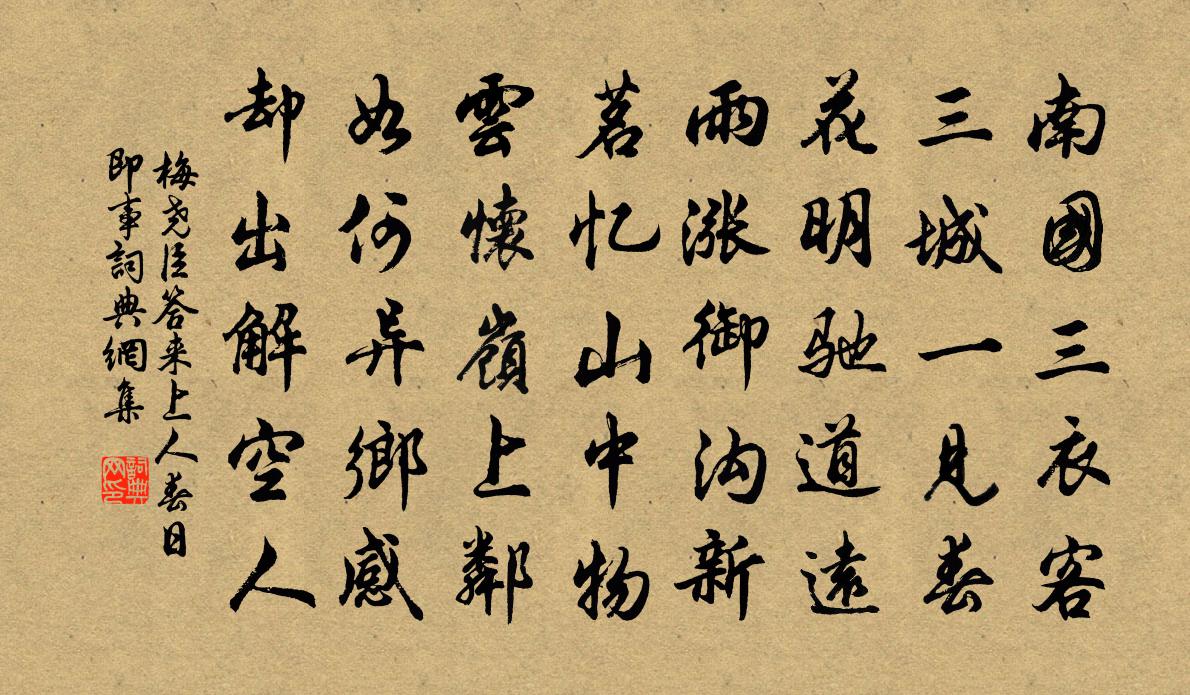 南國三衣客
三城一見春
花明馳道遠
雨漲御沟新
茗忆山中物
雲懷嶺上鄰
如何异鄉感
却出解空人
梅尧臣答来上人春日
即事詞典網集
詞典
网印